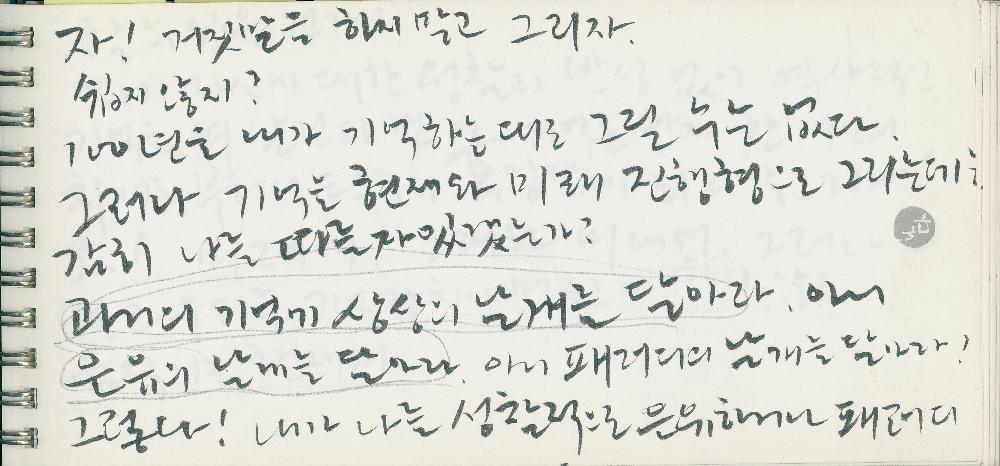 자! 거짓말을 하지 말고 그리자.
쉽지 않지?
100년을 내가 기억하는 대로 그릴 수는 없다.
그러나 기억는 현재와 미래 진행형으로 그리는데!
감히 나를 따를자있겠는가?
과거의 기억에 상상의 날개를 달아라. 아니
은유의 날개를 달아라. 아니 패러디의 날개를 달아라!
그렇다! 내가 나를 성찰적으로 은유하거나 패러디